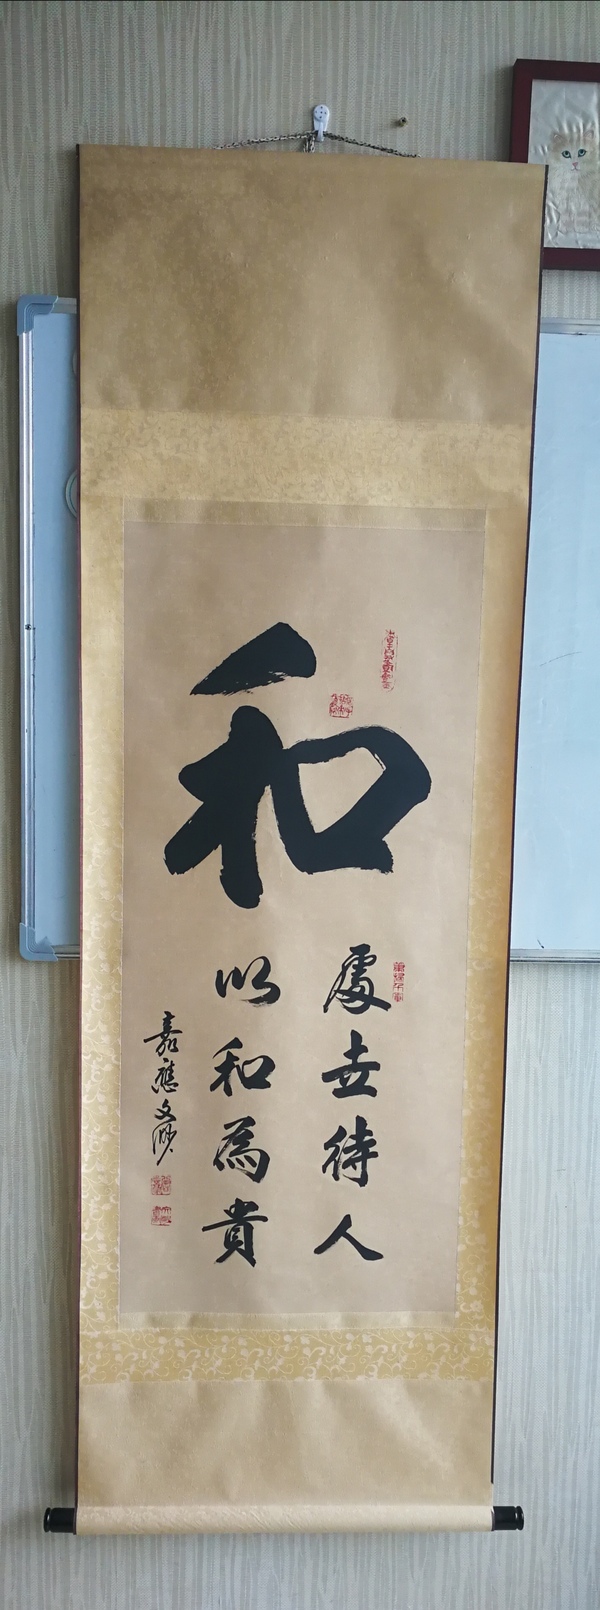 和
處世待人
以和為貴
嘉應文